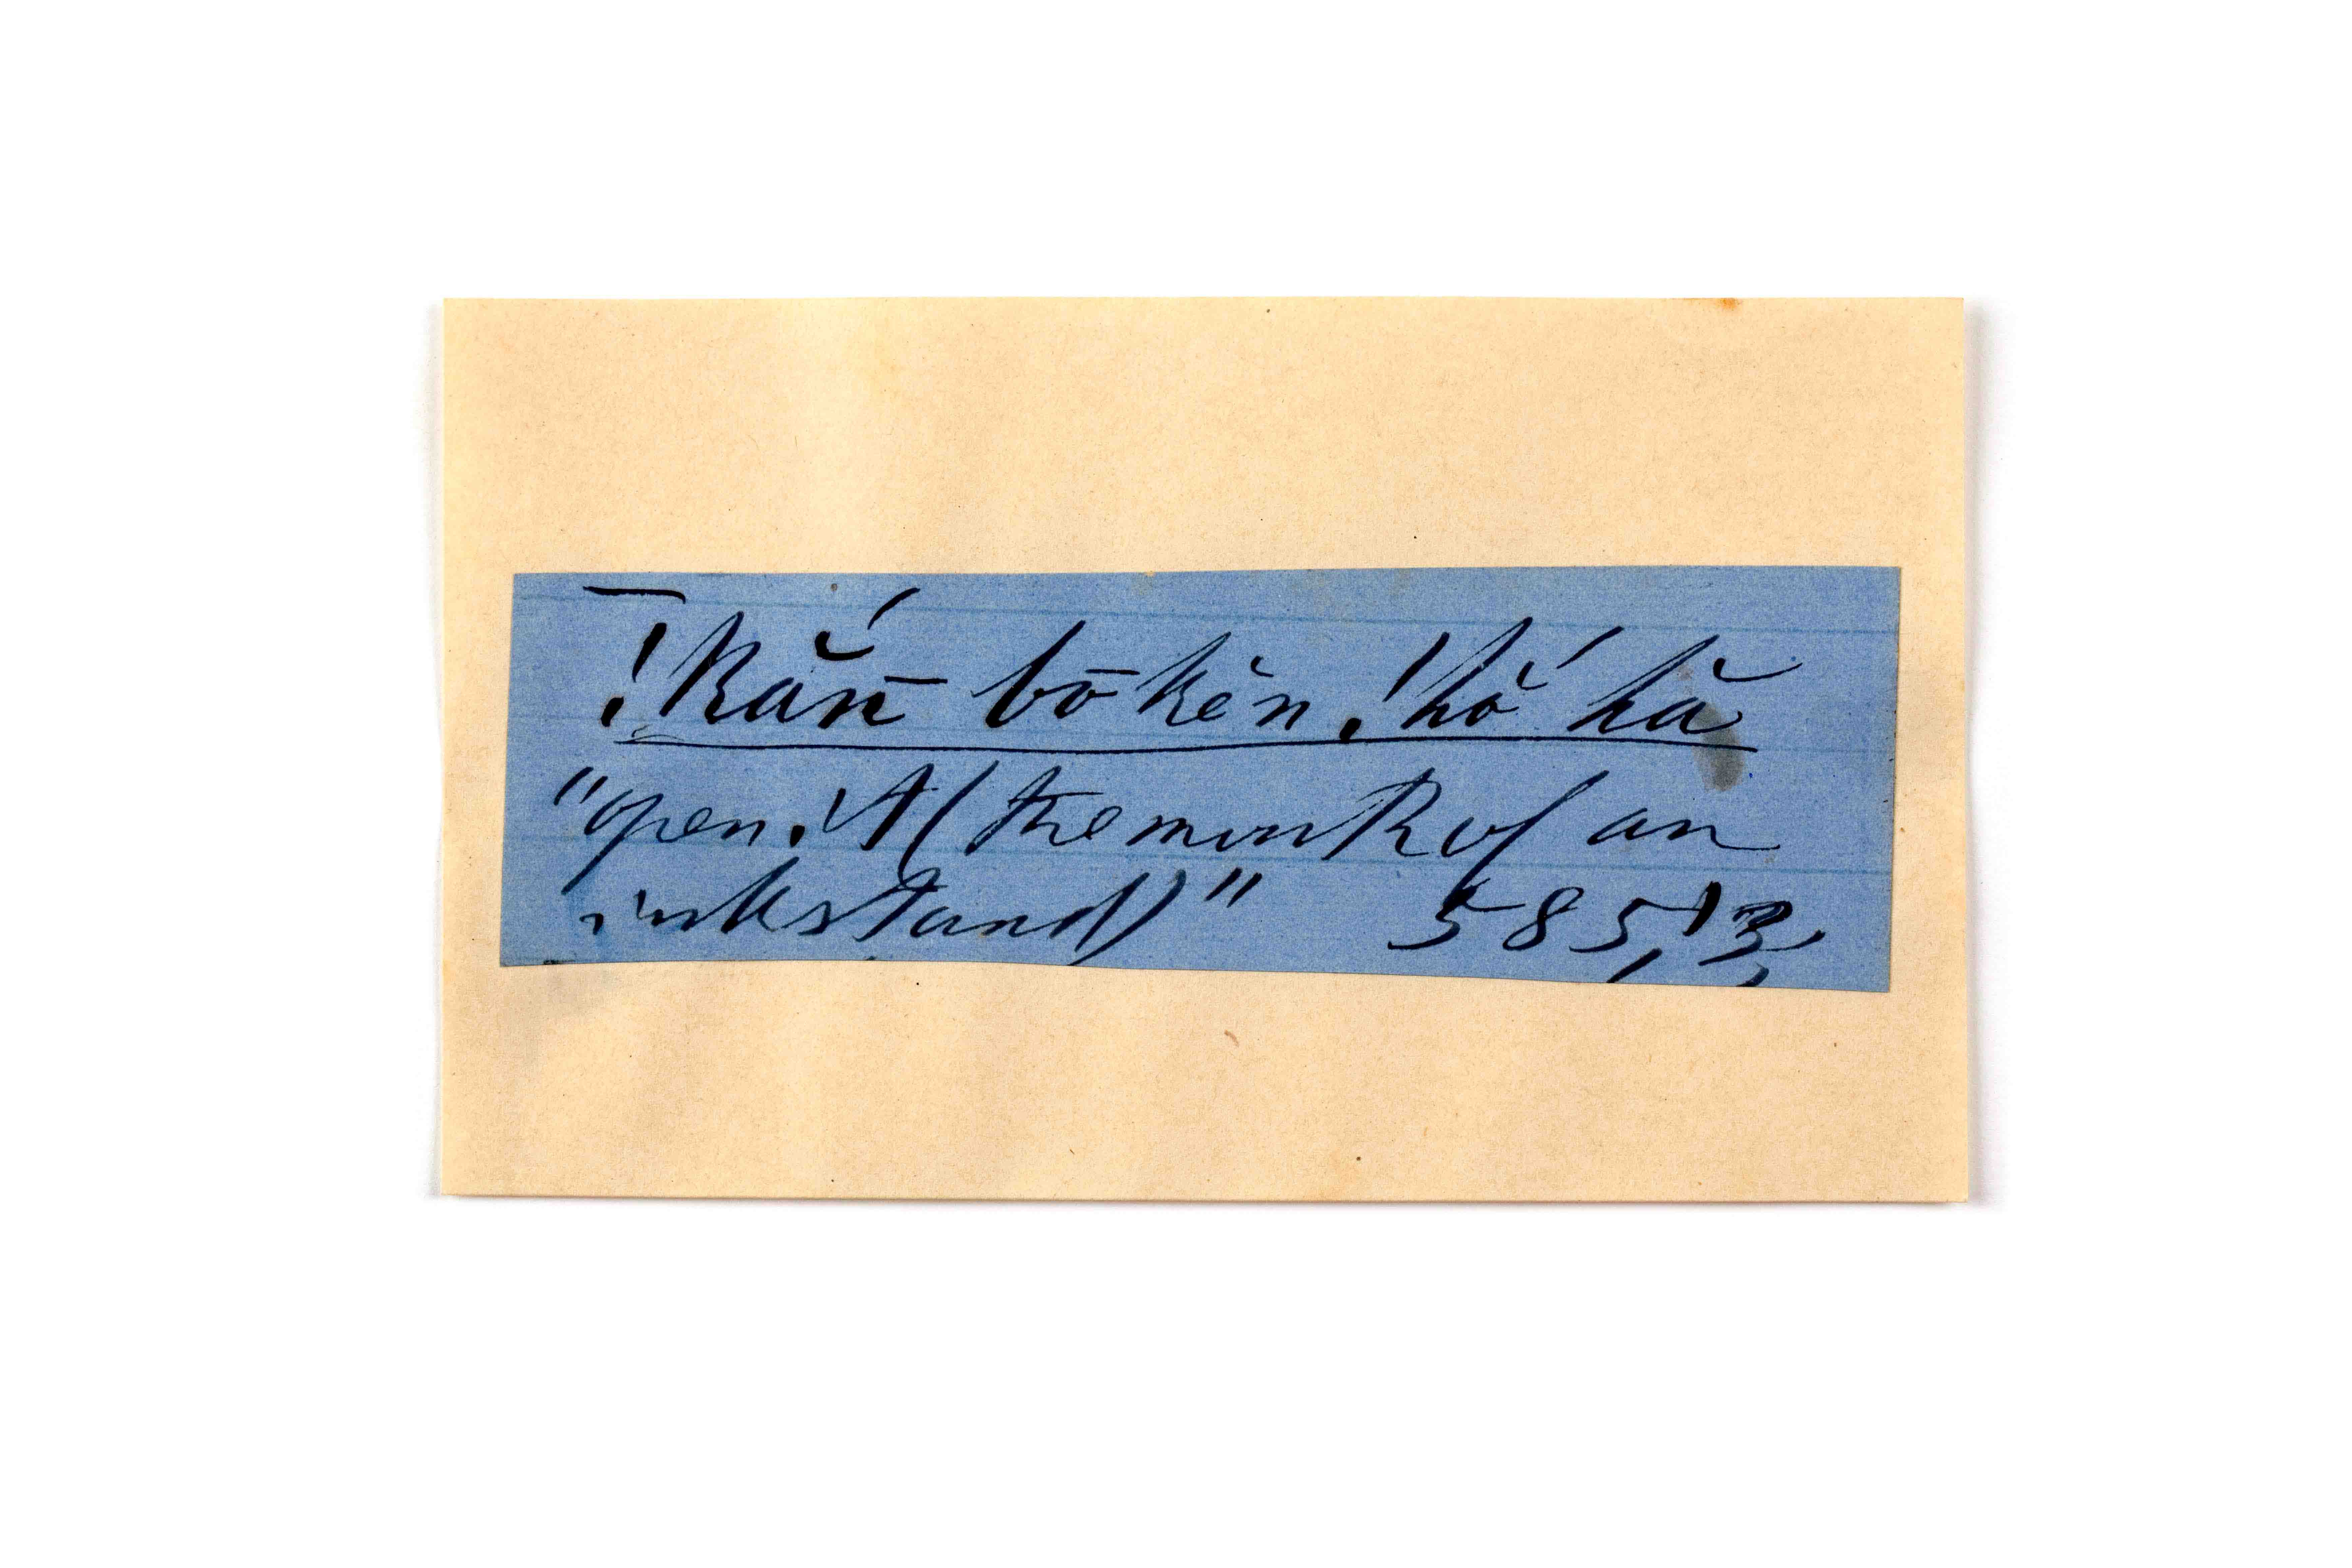 !kăń̄ bō kĕn, !hŏ́ hă
"open it (the mouth of an
inkstand)" 585,13,